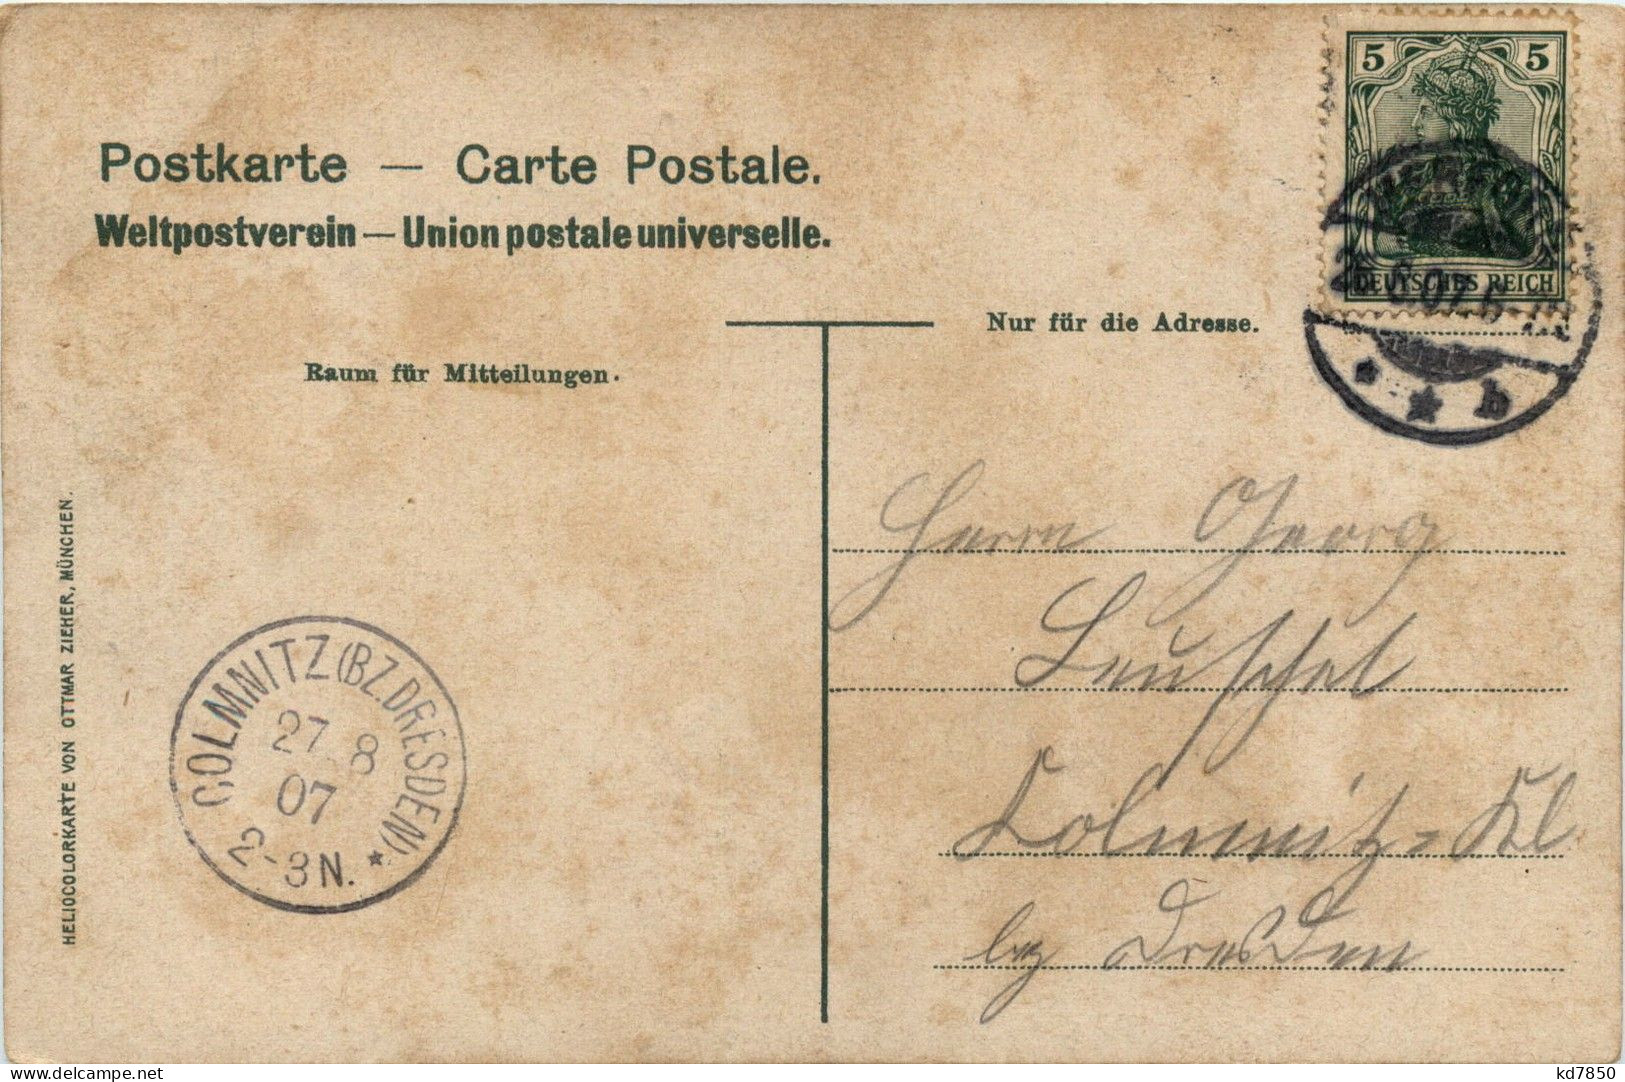 5 5
DEUTSCHES REICH
Postkarte — Carte Postale.
Weltpostverein — Union postale universelle.
Nur für die Adresse.
Raum für Mitteilungen.
b
Herrn Georg
Leuschel
Kolmnitz = Kl
bz Dresden
COLMNITZ (BZ. DRESDEN)
27 8
07
2-3N.
HELIOCOLORKARTE VON OTTMAR ZIEHER, MÜNCHEN.
www.delcampe.net
kd7850